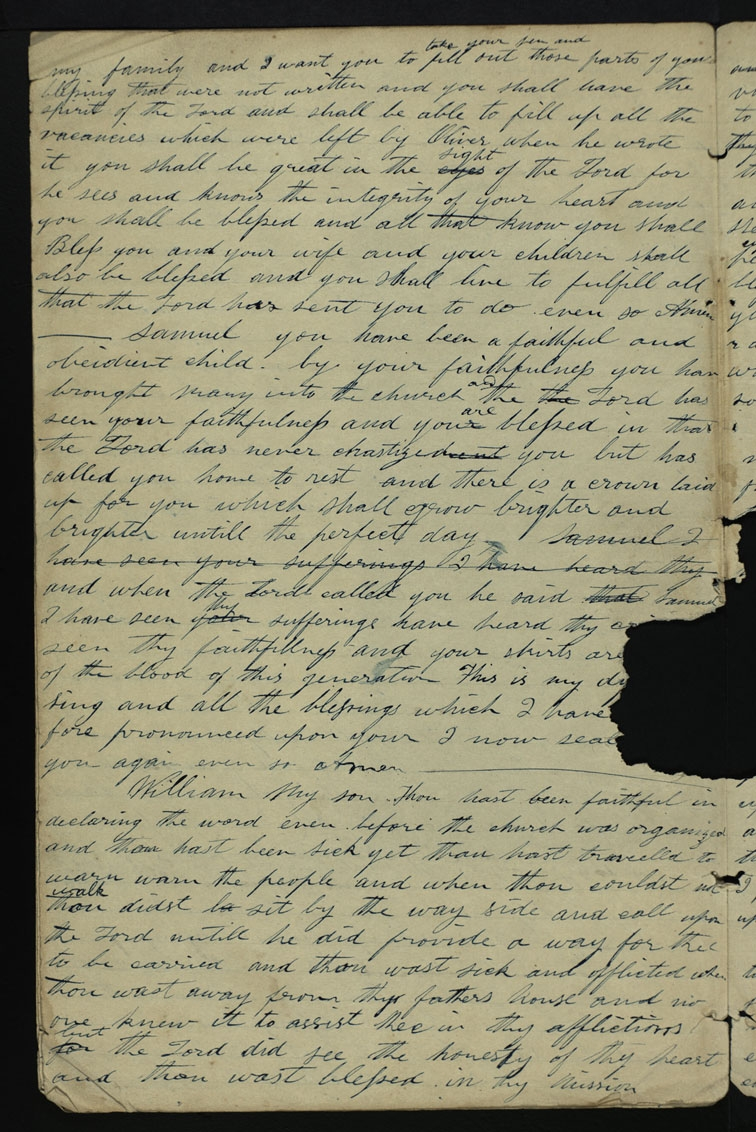 my family and I want you to take your pen and fill out those parts of your
blessing that were not written and you shall have the
spirit of the Lord and shall be able to fill up all the
vacancies which were left by Oliver when he wrote
it you shall be great in the eyes sight of the Lord for
he sees and knows the integrity of your heart and
you shall be blessed and all that know you shall
Bless you and your wife and your children shall
also be blessed and you shall live to fulfill all
that the Lord has sent you to do even so Amen
— Samuel you have been a faithful and
obeidient child. by your faithfulness you have
brought many into the church and the the Lord has
seen your faithfulness and your are blessed in that
the Lord has never chastized you but has
called you home to rest and there is a crown laid
up for you which shall grow brighter and
brighter untill the perfect day Samuel I
have seen your sufferings I have heard thy
and when the Lord called you he said that Samuel
I have seen your thy sufferings have heard thy
seen thy faithfullness and your skirts are
of the blood of this generation This is my
sing and all the blessings which I have
fore pronounced upon your I now seal
you again even so amen
William My son. thou hast been faithful in
declaring the word even before the church was organized
and thou hast been sick yet thou hast travelled to
warn warn the people and when thou couldst not
thou walk didst sit by the way side and call upon
the Lord untill he did provide a way for thee
to be carried and thou wast sick and afflicted when
thou wast away from thy fathers house and no
one knew it to assist thee in thy afflictions
for but the Lord did see the honesty of thy heart
and thou wast blessed in thy mission